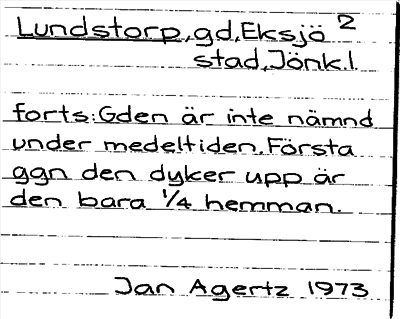 Lundstorp,gd,Eksjö 2
stad,Jönk.l.
forts:Gden är inte nämnd
under medeltiden.Första
ggn den dyker upp är
den bara 1/4 hemman.
Jan Agertz 1973